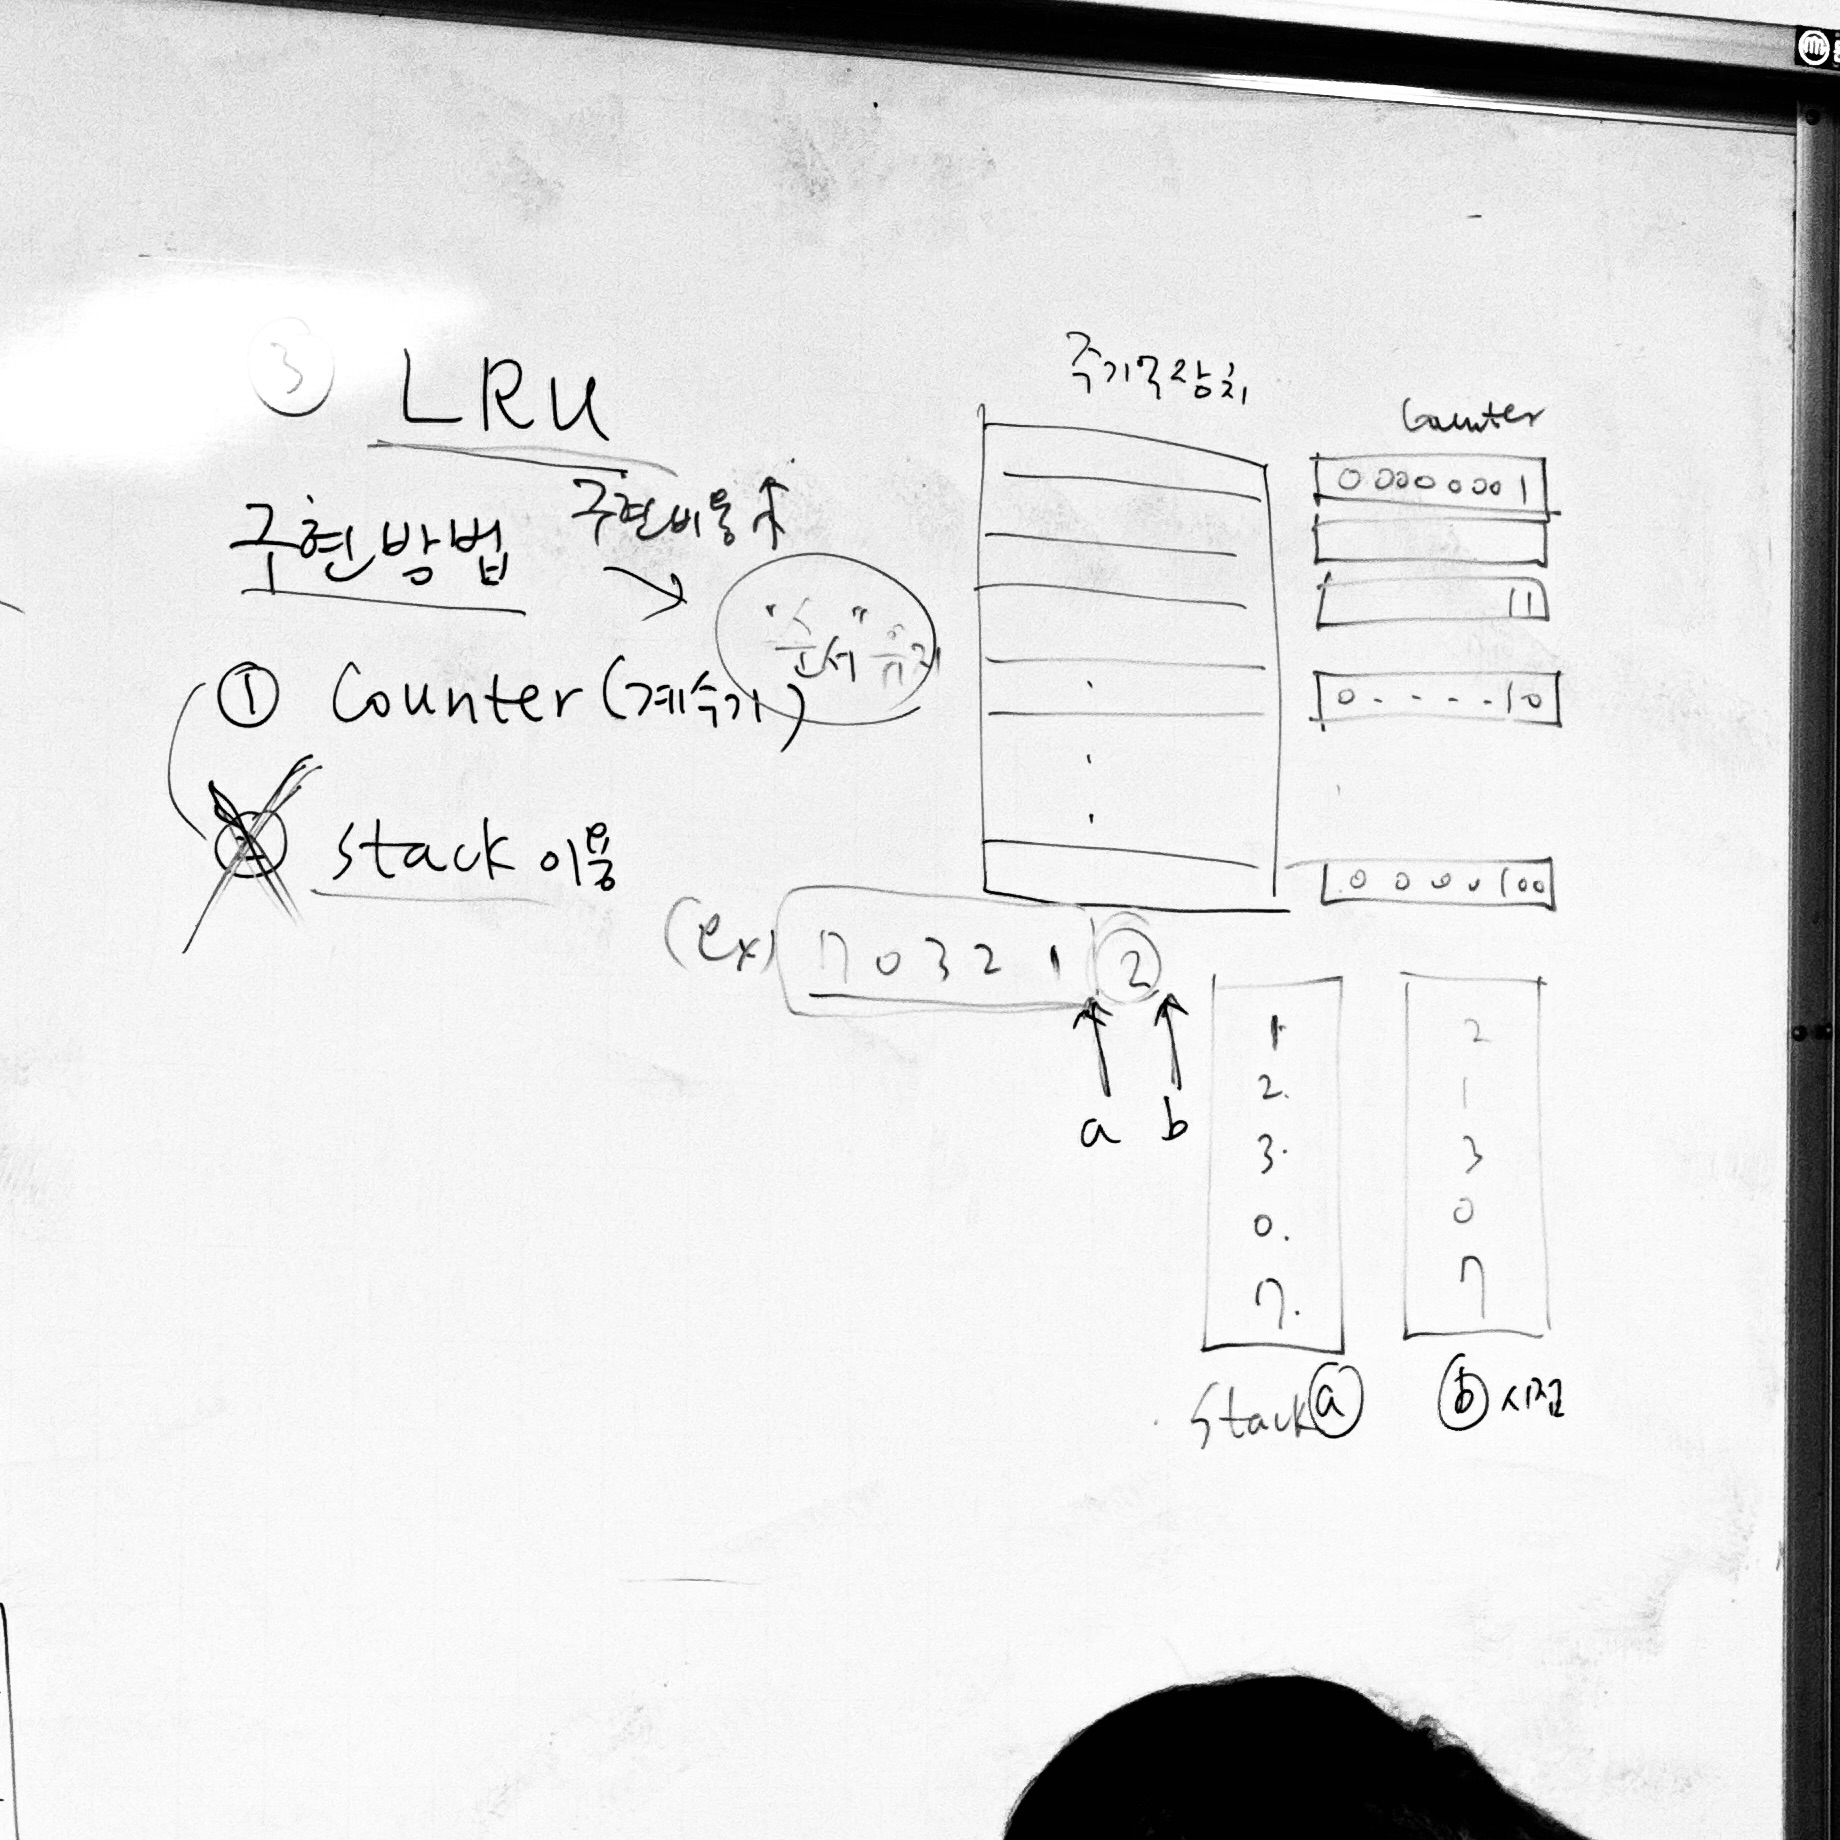 ③ LRU
구현방법 구현비용↑
→ "순서" 유지
① Counter (계수기)
② Stack 이용
주기억장치
Counter
0 000 0 00 1
11
0 - - - - 1 0
0 0 0 0 100
(ex) 7 0 3 2 1 ②
a b
1
2.
3.
0.
7.
Stack ⓐ
2
1
3
0
7
ⓑ 시점